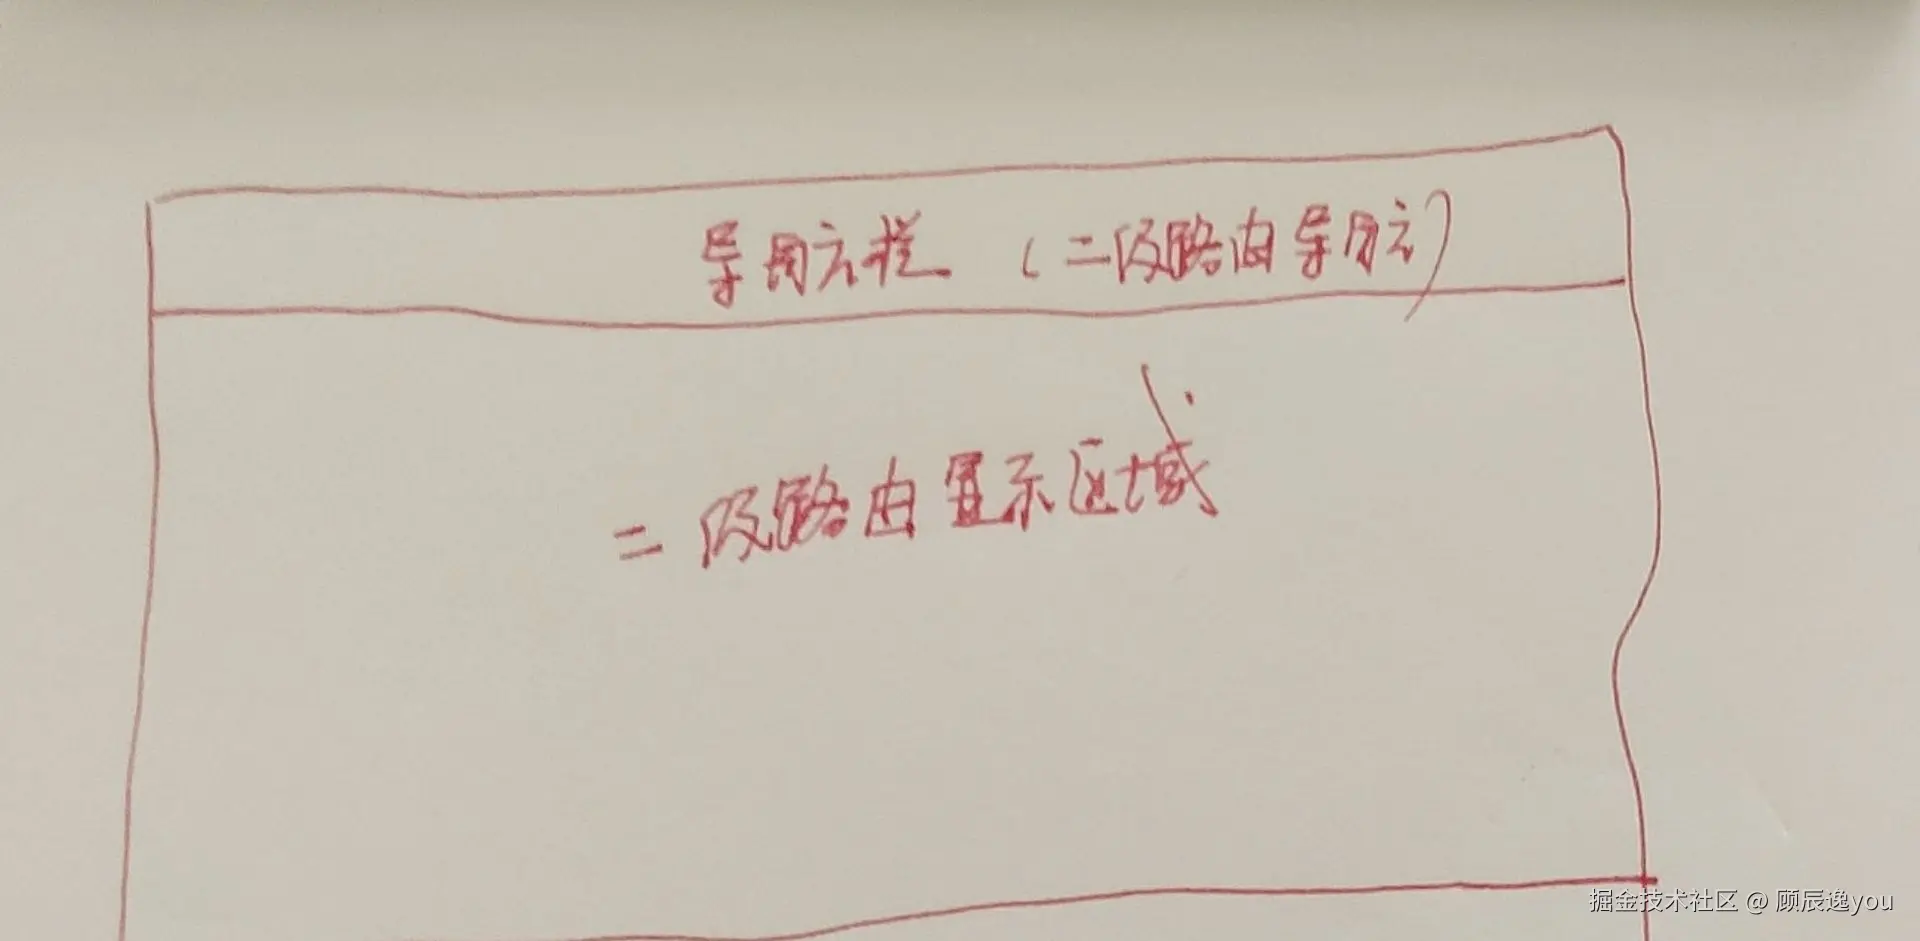 导航栏 (二级路由导航)
二级路由显示区域
掘金技术社区 @ 顾辰逸you